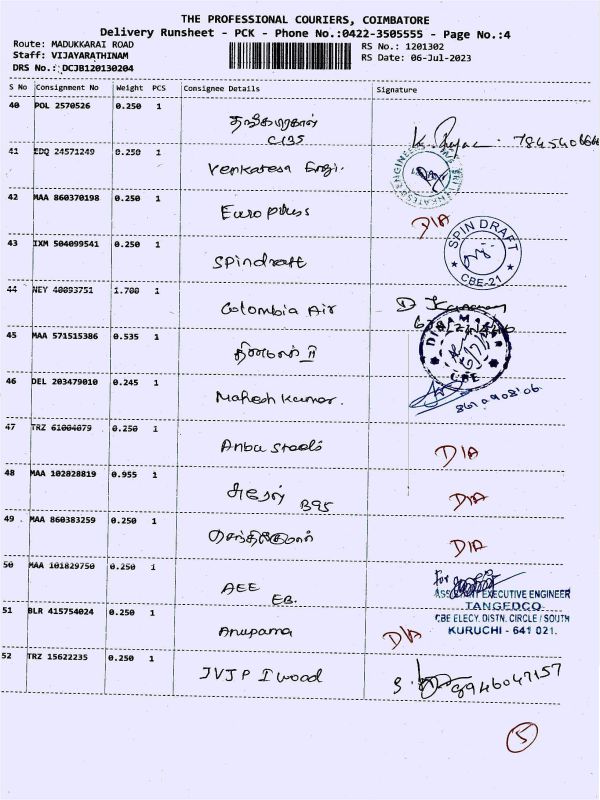 THE PROFESSIONAL COURIERS, COIMBATORE
Delivery Runsheet - PCK - Phone No.:0422-3505555 - Page No.:4
Route: MADUKKARAI ROAD
RS No.: 1201302
Staff: VIJAYARATHINAM
RS Date: 06-Jul-2023
DRS No.: DCJB120130204
S No Consignment No Weight PCS Consignee Details Signature
40 POL 2570526 0.250 1
C135
41 EDQ 24571249 0.250 1 Venkatesa Engi.
42 MAA 860370198 0.250 1 Euro Plus D/A
43 IXM 504099541 0.250 1 Spindraft SPIN DRAFT
CBE-21
44 NEY 40093751 1.700 1 Colombia Air
45 MAA 571515386 0.535 1 தினமலர் II DINAMALAR
CBE
46 DEL 203479010 0.245 1 Mahesh Kumar.
47 TRZ 61004079 0.250 1 Anbu Steels D/A
48 MAA 102828819 0.955 1 B95 D/A
49 MAA 860383259 0.250 1 செந்தில்குமார் D/A
50 MAA 101829750 0.250 1 AEE
EB. for
ASSISTANT EXECUTIVE ENGINEER
TANGEDCO
CBE ELECY. DISTN. CIRCLE / SOUTH
KURUCHI - 641 021.
51 BLR 415754024 0.250 1 Anupama D/A
52 TRZ 15622235 0.250 1 JVJP I wood 8946047157
5